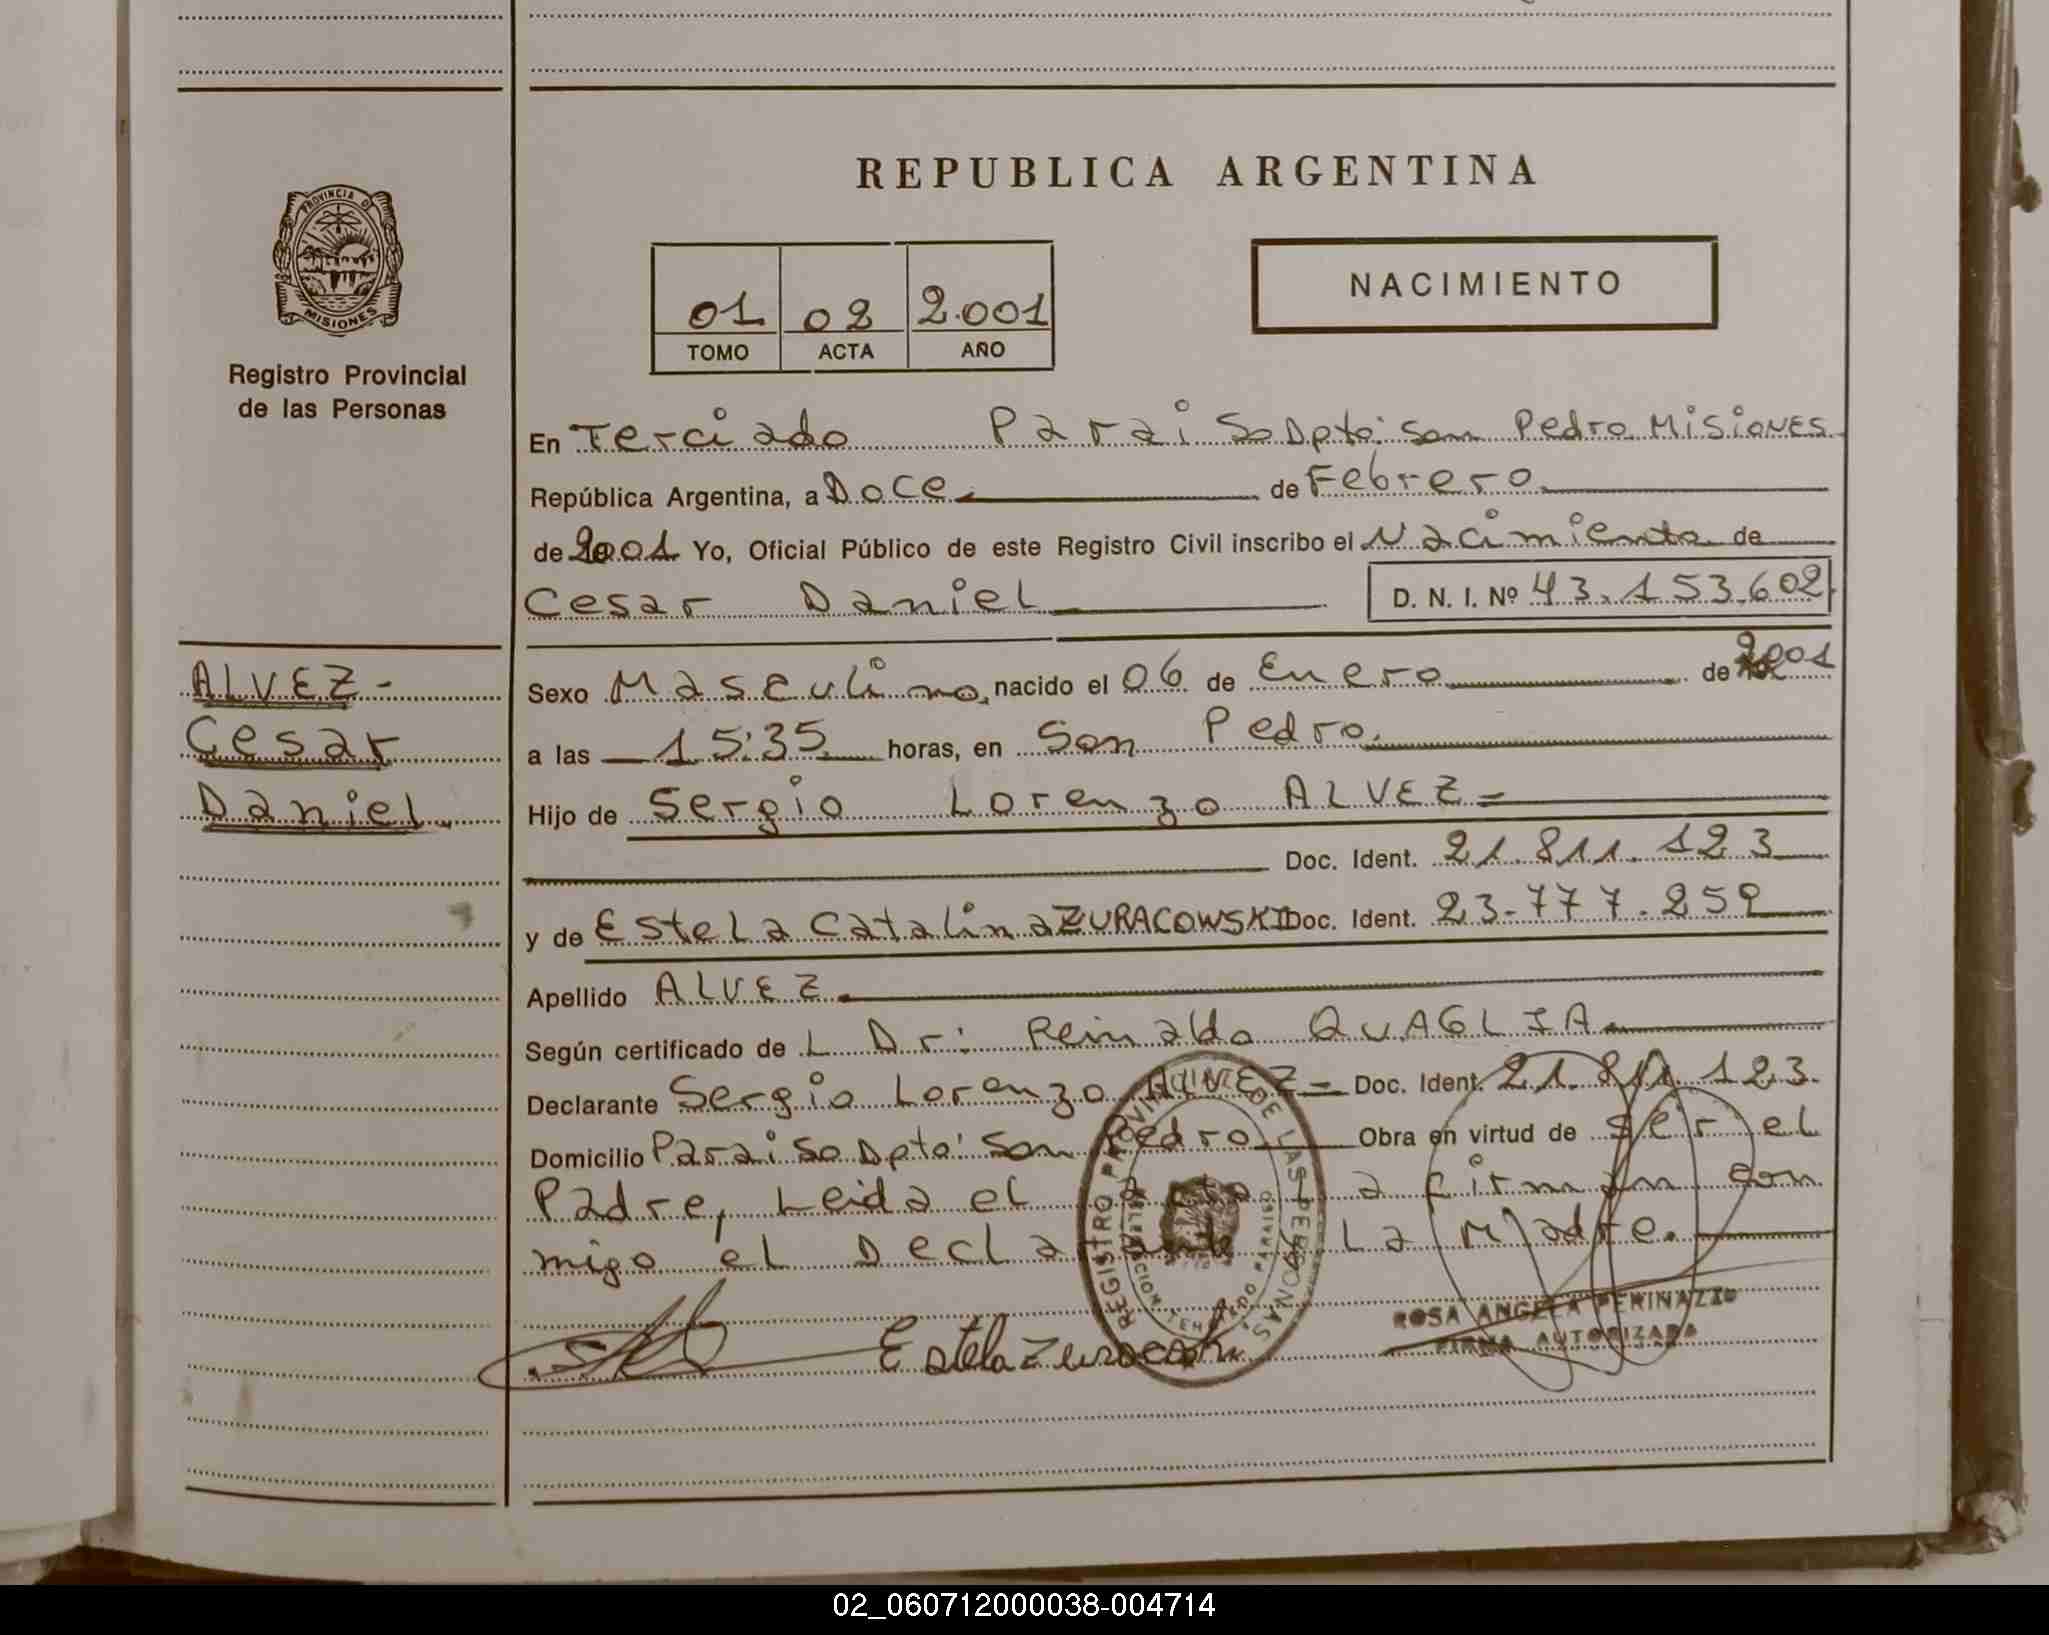 REPUBLICA ARGENTINA
PROVINCIA D
MISIONES
Registro Provincial
de las Personas
NACIMIENTO
01 02 2.001
TOMO ACTA AÑO
En Terciado Paraiso Dpto: San Pedro Misiones
República Argentina, a Doce de Febrero
de 2001 Yo, Oficial Público de este Registro Civil inscribo el Nacimiento de
Cesar Daniel D. N. I. Nº 43.153.602
ALVEZ-
Cesar
Daniel.
Sexo Masculino, nacido el 06 de Enero de 2001
a las 15:35 horas, en San Pedro.
Hijo de Sergio Lorenzo ALVEZ=
Doc. Ident. 21.811.123
y de Estela Catalina ZURACOWSKI Doc. Ident. 23-777.259
Apellido ALVEZ
Según certificado de L Dr: Reinaldo QUAGLIA
Declarante Sergio Lorenzo ALVEZ= Doc. Ident. 21.811.123.
Domicilio Paraiso Dpto: San Pedro Obra en virtud de ser el
Padre, Leida el acta La firman con
migo el Declarante y La Madre.
REGISTRO PROVINCIAL DE LAS PERSONAS
DELEGACION TERCIADO PARAISO
Estela
ROSA ANGELA PERINAZZO
FIRMA AUTORIZADA
02_060712000038-004714